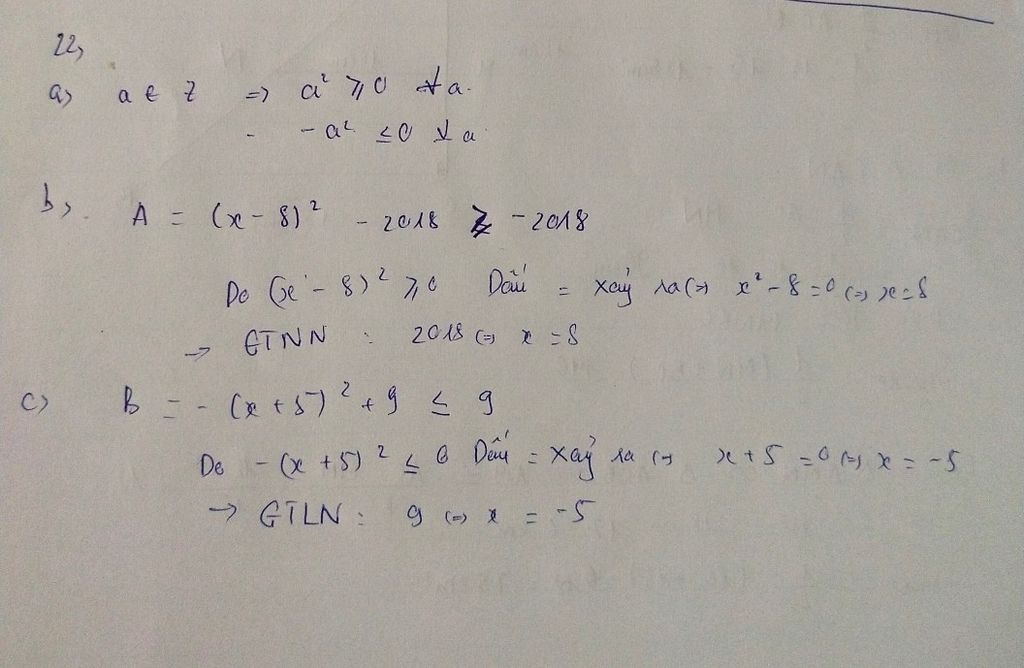 22,
a) a ∈ Z => a² ≥ 0 ∀ a.
- a² ≤ 0 ∀ a
b) A = (x - 8)² - 2018 ≥ - 2018
Do (x - 8)² ≥ 0 Dấu = xảy ra <=> x² - 8 = 0 <=> x = 8
→ GTNN : 2018 <=> x = 8
c) B = - (x + 5)² + 9 ≤ 9
Do - (x + 5)² ≤ 0 Dấu = xảy ra <=> x + 5 = 0 <=> x = -5
→ GTLN : 9 <=> x = -5